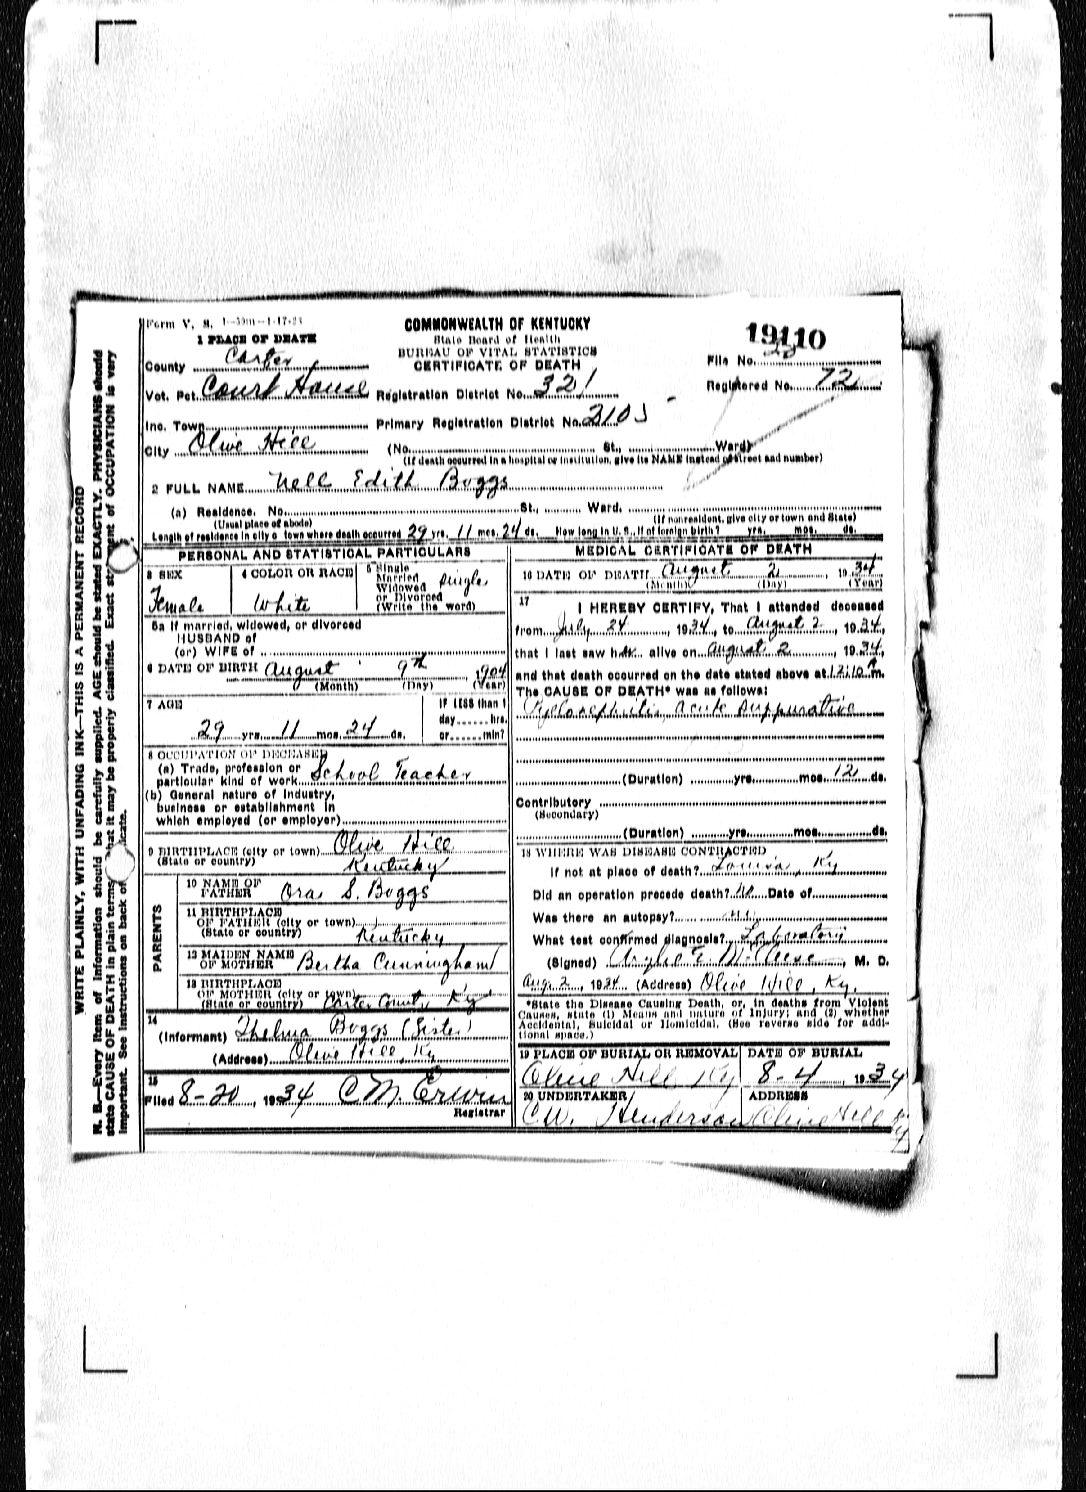 Form V. S. 1-50m-1-17-23
COMMONWEALTH OF KENTUCKY
State Board of Health
BUREAU OF VITAL STATISTICS
CERTIFICATE OF DEATH
19110
File No.
Registered No. 72
1 PLACE OF DEATH
County Carter
Vot. Pct. Court House Registration District No. 321
Inc. Town Primary Registration District No. 2105
City Olive Hill (No. St., Ward)
(If death occurred in a hospital or institution, give its NAME instead of street and number)
2 FULL NAME Nell Edith Boggs
(a) Residence. No. St., Ward.
(Usual place of abode) (If nonresident, give city or town and State)
Length of residence in city o town where death occurred 29 yrs. 11 mos. 24 ds. How long in U. S., if of foreign birth? yrs. mos. ds.
PERSONAL AND STATISTICAL PARTICULARS
3 SEX Female
4 COLOR OR RACE White
5 Single Married Widowed or Divorced (Write the word) single
5a If married, widowed, or divorced
HUSBAND of
(or) WIFE of
6 DATE OF BIRTH August 9th 1904
(Month) (Day) (Year)
7 AGE
29 yrs. 11 mos. 24 ds.
IF LESS than 1
day hrs.
or min?
8 OCCUPATION OF DECEASED
(a) Trade, profession or
particular kind of work School Teacher
(b) General nature of industry,
business or establishment in
which employed (or employer)
9 BIRTHPLACE (city or town) Olive Hill
(State or country) Kentucky
PARENTS
10 NAME OF FATHER Ora S. Boggs
11 BIRTHPLACE
OF FATHER (city or town)
(State or country) Kentucky
12 MAIDEN NAME
OF MOTHER Bertha Cunningham
13 BIRTHPLACE
OF MOTHER (city or town)
(State or country) Carter County Ky
14
(Informant) Thelma Boggs (Sister)
(Address) Olive Hill, Ky
15
Filed 8-20, 1934 C M. Erwin
Registrar
MEDICAL CERTIFICATE OF DEATH
16 DATE OF DEATH August 2 1934
(Month) (Day) (Year)
17
I HEREBY CERTIFY, That I attended deceased
from July 24, 1934, to August 2, 1934,
that I last saw her alive on August 2, 1934,
and that death occurred on the date stated above at 12:10 A m.
The CAUSE OF DEATH* was as follows:
Pyelonephritis, acute suppurative
(Duration) yrs. mos. 12 ds.
Contributory
(Secondary)
(Duration) yrs. mos. ds.
18 WHERE WAS DISEASE CONTRACTED
If not at place of death? Louisa, Ky
Did an operation precede death? no Date of
Was there an autopsy? no
What test confirmed diagnosis? Laboratory
(Signed) M. D.
Aug. 2, 1934 (Address) Olive Hill, Ky.
*State the Disease Causing Death, or, in deaths from Violent
Causes, state (1) Means and nature of Injury; and (2) whether
Accidental, Suicidal or Homicidal. (See reverse side for addi-
tional space.)
19 PLACE OF BURIAL OR REMOVAL DATE OF BURIAL
Olive Hill Ky 8-4, 1934
20 UNDERTAKER ADDRESS
C W. Henderson Olive Hill Ky
WRITE PLAINLY, WITH UNFADING INK—THIS IS A PERMANENT RECORD
N. B.—Every item of information should be carefully supplied. AGE should be stated EXACTLY. PHYSICIANS should
state CAUSE OF DEATH in plain terms, that it may be properly classified. Exact st ment of OCCUPATION is very
important. See instructions on back of icate.